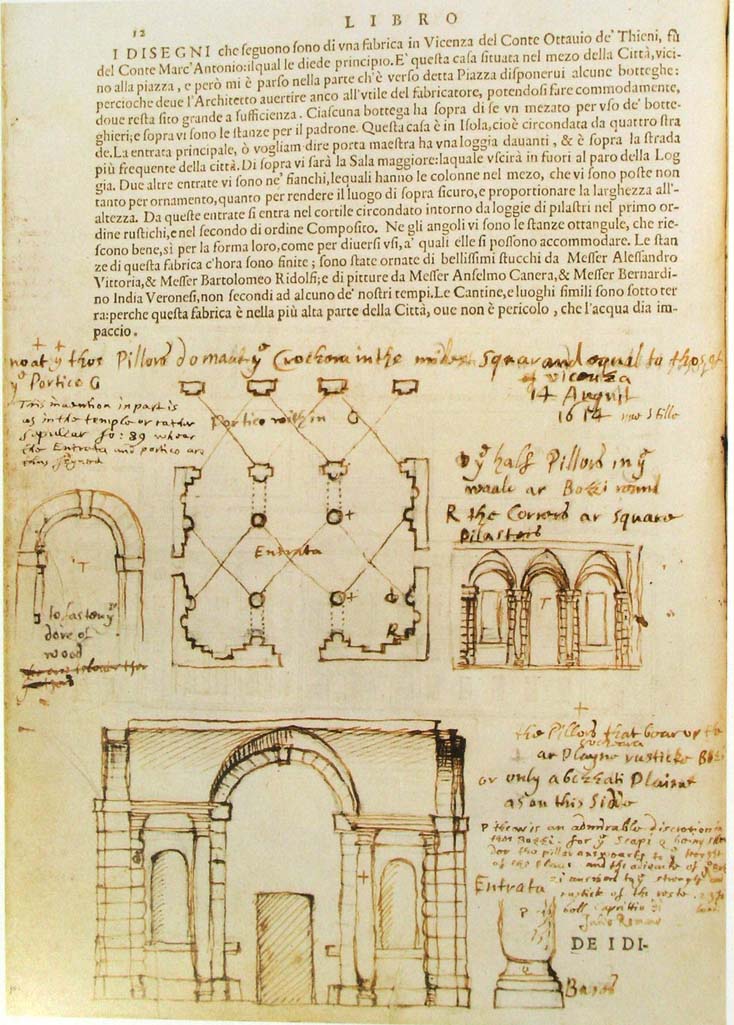 12
LIBRO
I DISEGNI che ſeguono ſono di vna fabrica in Vicenza del Conte Ottauio de' Thieni, fù
del Conte Marc'Antonio: ilqual le diede principio. E' queſta caſa ſituata nel mezo della Città, vici-
no alla piazza, e però mi è parſo nella parte ch'è verſo detta Piazza diſponerui alcune botteghe:
percioche deue l'Architetto auertire anco all'vtile del fabricatore, potendoſi fare commodamente,
doue reſta ſito grande a ſufficienza. Ciaſcuna bottega ha ſopra di ſe vn mezato per vſo de' botte-
ghieri; e ſopra vi ſono le ſtanze per il padrone. Queſta caſa è in Iſola, cioè circondata da quattro ſtra
de. La entrata principale, ò vogliam dire porta maeſtra ha vna loggia dauanti, & è ſopra la ſtrada
più frequente della città. Di ſopra vi ſarà la Sala maggiore: laquale vſcirà in fuori al paro della Log
gia. Due altre entrate vi ſono ne' fianchi, lequali hanno le colonne nel mezo, che vi ſono poſte non
tanto per ornamento, quanto per rendere il luogo di ſopra ſicuro, e proportionare la larghezza all'-
altezza. Da queſte entrate ſi entra nel cortile circondato intorno da loggie di pilaſtri nel primo or-
dine ruſtichi, e nel ſecondo di ordine Compoſito. Ne gli angoli vi ſono le ſtanze ottangule, che rie-
ſcono bene, sì per la forma loro, come per diuerſi vſi, a' quali elle ſi poſſono accommodare. Le ſtan
ze di queſta fabrica c'hora ſono finite; ſono ſtate ornate di belliſſimi ſtucchi da Meſſer Aleſſandro
Vittoria, & Meſſer Bartolomeo Ridolfi; e di pitture da Meſſer Anſelmo Canera, & Meſſer Bernardi-
no India Veroneſi, non ſecondi ad alcuno de' noſtri tempi. Le Cantine, e luoghi ſimili ſono ſotto ter
ra: perche queſta fabrica è nella più alta parte della Città, oue non è pericolo, che l'acqua dia im-
paccio.
Pillors do in the and equil to
yᵉ Portico G
of vicenza
14 August
1614
This invention in part is
as in the temple or rather
fo: 39 whear
the Entrata and portico ar
thus
Portico within G
yᵉ half Pillors in yᵉ
waale ar Bozzi round
R the Corners ar square
Pilasters
T
Entrata
T
to fasten yᵉ
dore of
wood
R
the Pillors that bear
ar Playne rusticke
or only abozzati Plaine
as on this Side
P ther is an admirable discretion in
Entrata
P
Julio Romano
DE I DI-
Bases